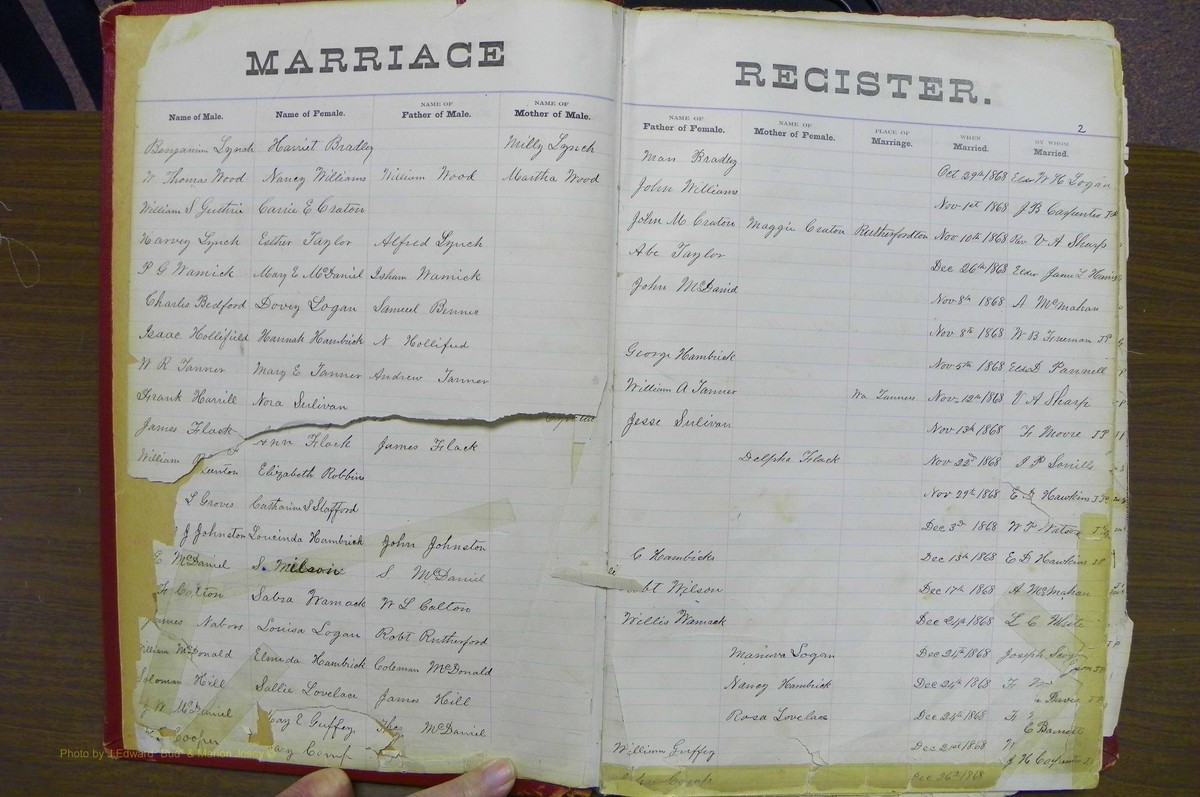 MARRIAGE REGISTER.
2
Name of Male. Name of Female. NAME OF Father of Male. NAME OF Mother of Male. NAME OF Father of Female. NAME OF Mother of Female. PLACE OF Marriage. WHEN Married. BY WHOM Married.
Benjamin Lynch Harriet Bradley Milly Lynch Man Bradley Oct 29th 1868 Eld W H Logan
W Thomas Wood Nancy Williams William Wood Martha Wood John Williams Nov 1st 1868 J B Carpenter JP
William S Guthrie Carrie E Craton John M Craton Maggie Craton Rutherfordton Nov 10th 1868 Rev V A Sharp
Harvey Lynch Esther Taylor Alfred Lynch Abe Taylor Dec 26th 1868 Elder James L
P G Wamick Mary E McDaniel Isham Wamick John McDaniel Nov 8th 1868 A McMahan
Charles Bedford Dovey Logan Samuel Nov 8th 1868 W B Freeman JP
Isaac Hollifield Hannah Hambrick N Hollified George Hambrick Nov 5th 1868 Eld D Pannell
W R Tanner Mary E Tanner Andrew Tanner William A Tanner Wm Tanners Nov 12th 1868 V A Sharp
Frank Harrill Nora Sulivan Jesse Sulivan Nov 13th 1868 Fr Moore JP
James Flack Ann Flack James Flack Delpha Flack Nov 22d 1868
William Elizabeth Robbins Nov 29th 1868 E D Hawkins JP
L Groves Catharine S Stafford Dec 3d 1868 W P Watson
J Johnston Loucinda Hambrick John Johnston C Hambicks Dec 13th 1868 E D Hawkins JP
McDaniel S. Wilson S McDaniel Wilson Dec 17th 1868 A McMahan
Colton Sabra Wamack W L Colton Willis Wamack Dec 24th 1868 L C White
Nabors Louisa Logan Robt Rutherford Logan Dec 24th 1868 Joseph
William McDonald Elmida Hambrick Coleman McDonald Nancy Hambrick Dec 24th 1868
Soloman Hill Sallie Lovelace James Hill Rosa Lovelace Dec 24th 1868
W McDaniel Mary E Guffey McDaniel William Guffey Dec 21st 1868
Cooper Camp Dec 26th 1868
J H Carpenter
Photo by J.Edward "Bud" & Marion Josey